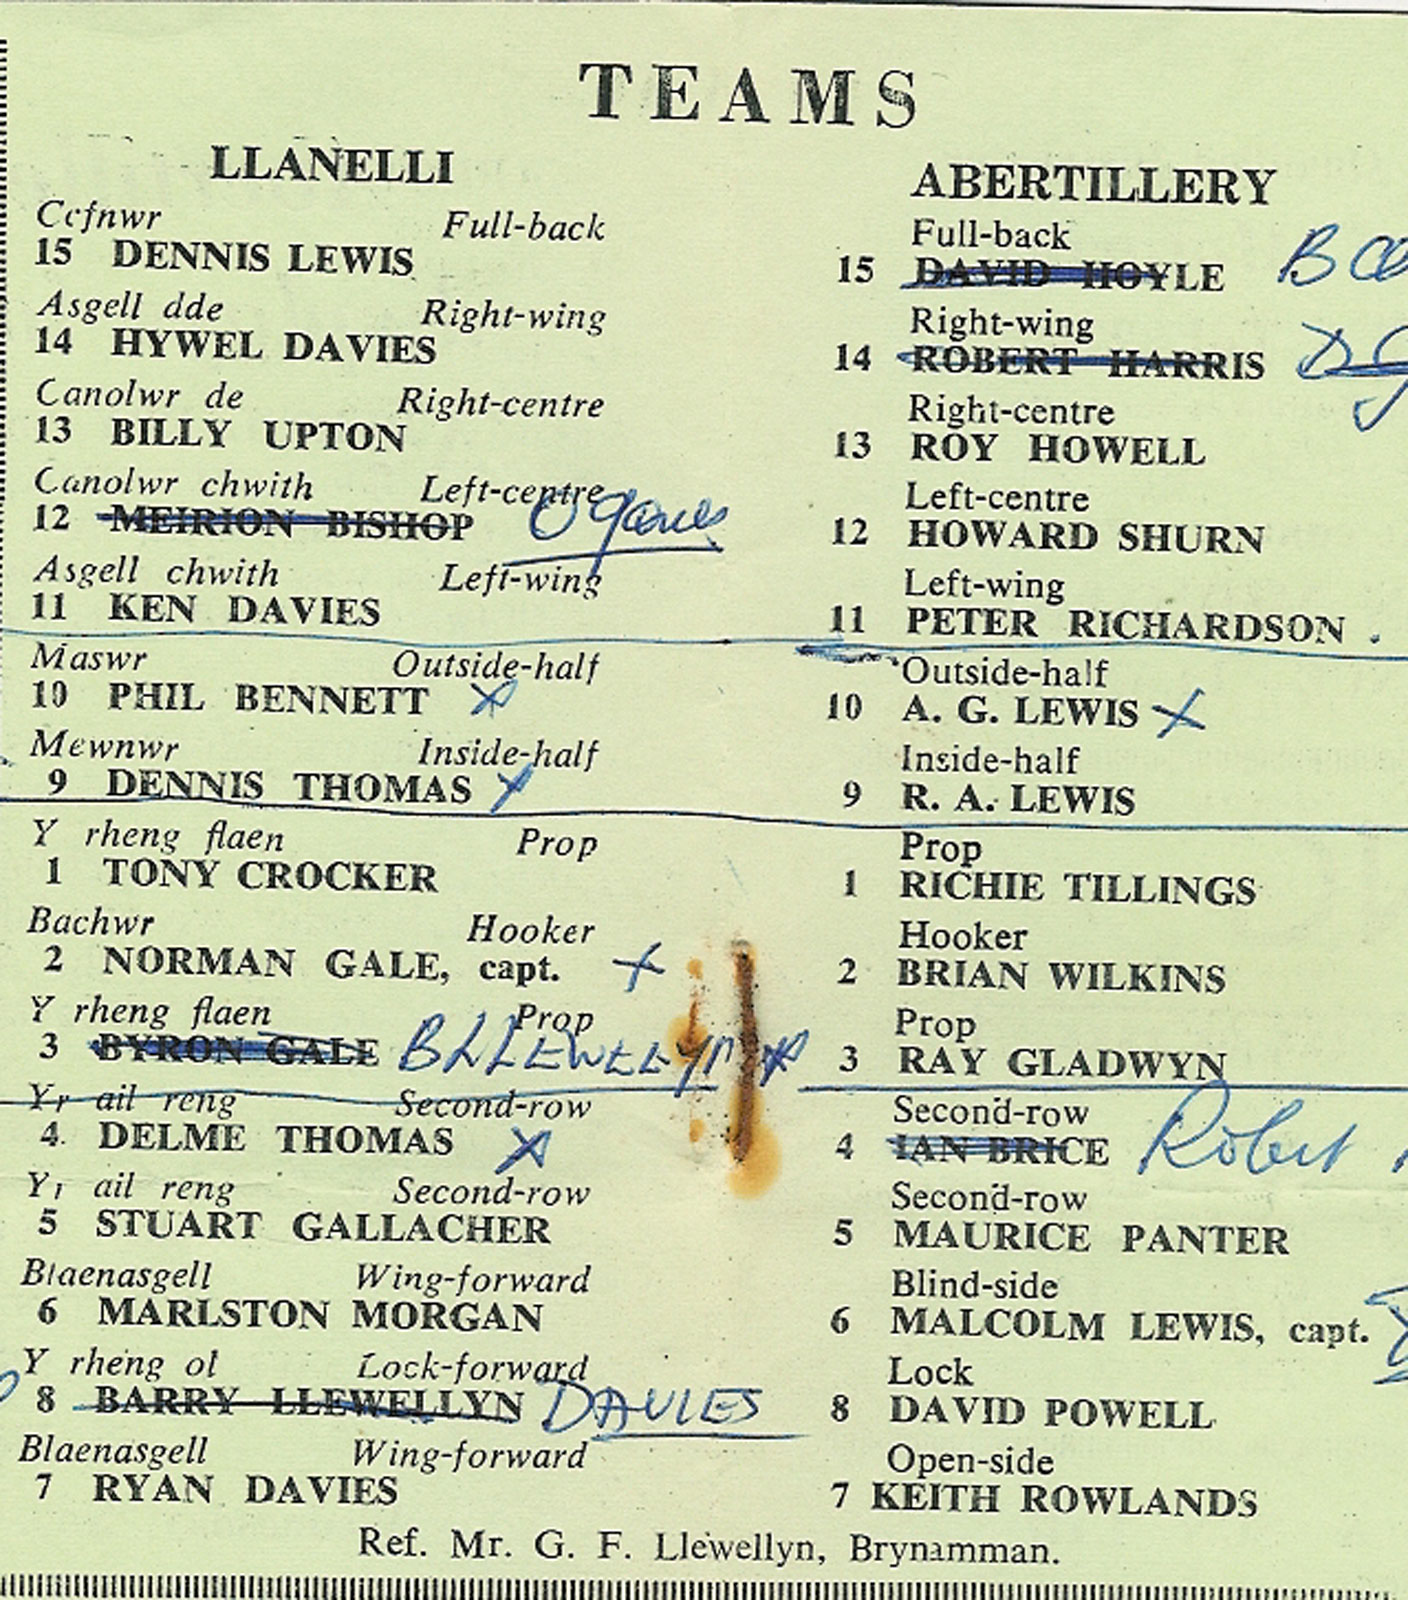 TEAMS
LLANELLI
Cefnwr Full-back
15 DENNIS LEWIS
Asgell dde Right-wing
14 HYWEL DAVIES
Canolwr de Right-centre
13 BILLY UPTON
Canolwr chwith Left-centre
12 MEIRION BISHOP
Asgell chwith Left-wing
11 KEN DAVIES
Maswr Outside-half
10 PHIL BENNETT
Mewnwr Inside-half
9 DENNIS THOMAS
Y rheng flaen Prop
1 TONY CROCKER
Bachwr Hooker
2 NORMAN GALE, capt.
Y rheng flaen Prop
3 BYRON GALE B LLEWELLYN
Yr ail reng Second-row
4 DELME THOMAS
Yr ail reng Second-row
5 STUART GALLACHER
Blaenasgell Wing-forward
6 MARLSTON MORGAN
Y rheng ol Lock-forward
8 BARRY LLEWELLYN DAVIES
Blaenasgell Wing-forward
7 RYAN DAVIES
ABERTILLERY
Full-back
15 DAVID HOYLE
Right-wing
14 ROBERT HARRIS
Right-centre
13 ROY HOWELL
Left-centre
12 HOWARD SHURN
Left-wing
11 PETER RICHARDSON
Outside-half
10 A. G. LEWIS
Inside-half
9 R. A. LEWIS
Prop
1 RICHIE TILLINGS
Hooker
2 BRIAN WILKINS
Prop
3 RAY GLADWYN
Second-row
4 IAN BRICE Robert
Second-row
5 MAURICE PANTER
Blind-side
6 MALCOLM LEWIS, capt.
Lock
8 DAVID POWELL
Open-side
7 KEITH ROWLANDS
Ref. Mr. G. F. Llewellyn, Brynamman.